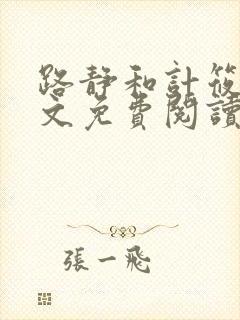 路靜和計筱
文免費閱讀
張一飛